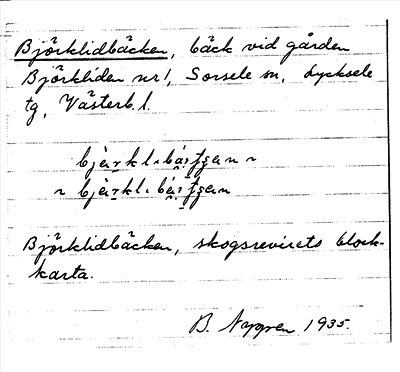 Björklidbäcken, bäck vid gården
Björkliden nr 1, Sorsele sn, Lycksele
tg, Västerb. l.
Björklidbäcken, skogsrevirets block-
karta.
B. Nygren 1935.